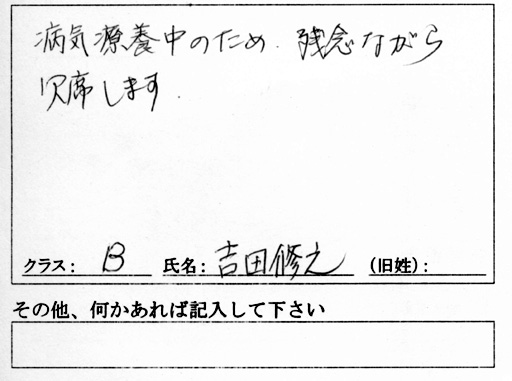 病気療養中のため、残念ながら
欠席します。
クラス： B 氏名： 吉田修之 （旧姓）：
その他、何かあれば記入して下さい